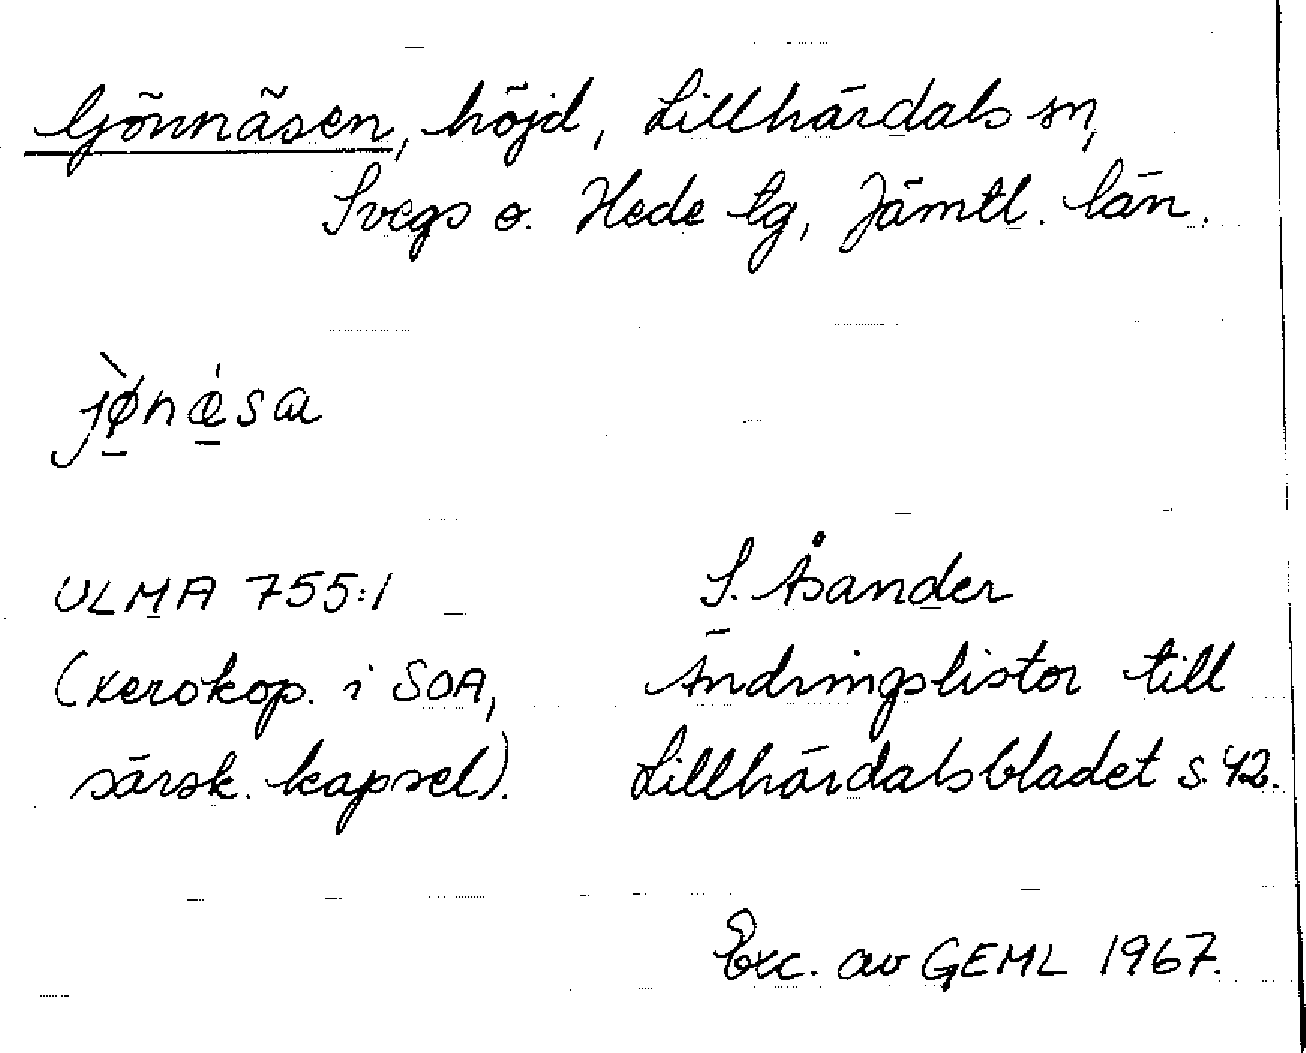 Gjönnäsen, höjd, Lillhärdals sn,
Svegs o. Hede tg, Jämtl. län.
jø̀næ̍sa
ULMA 755:1
(xerokop. i SOA,
särsk. kapsel).
S. Åsander
Ändringslistor till
Lillhärdalsbladet s 42.
Exc. av GEML 1967.